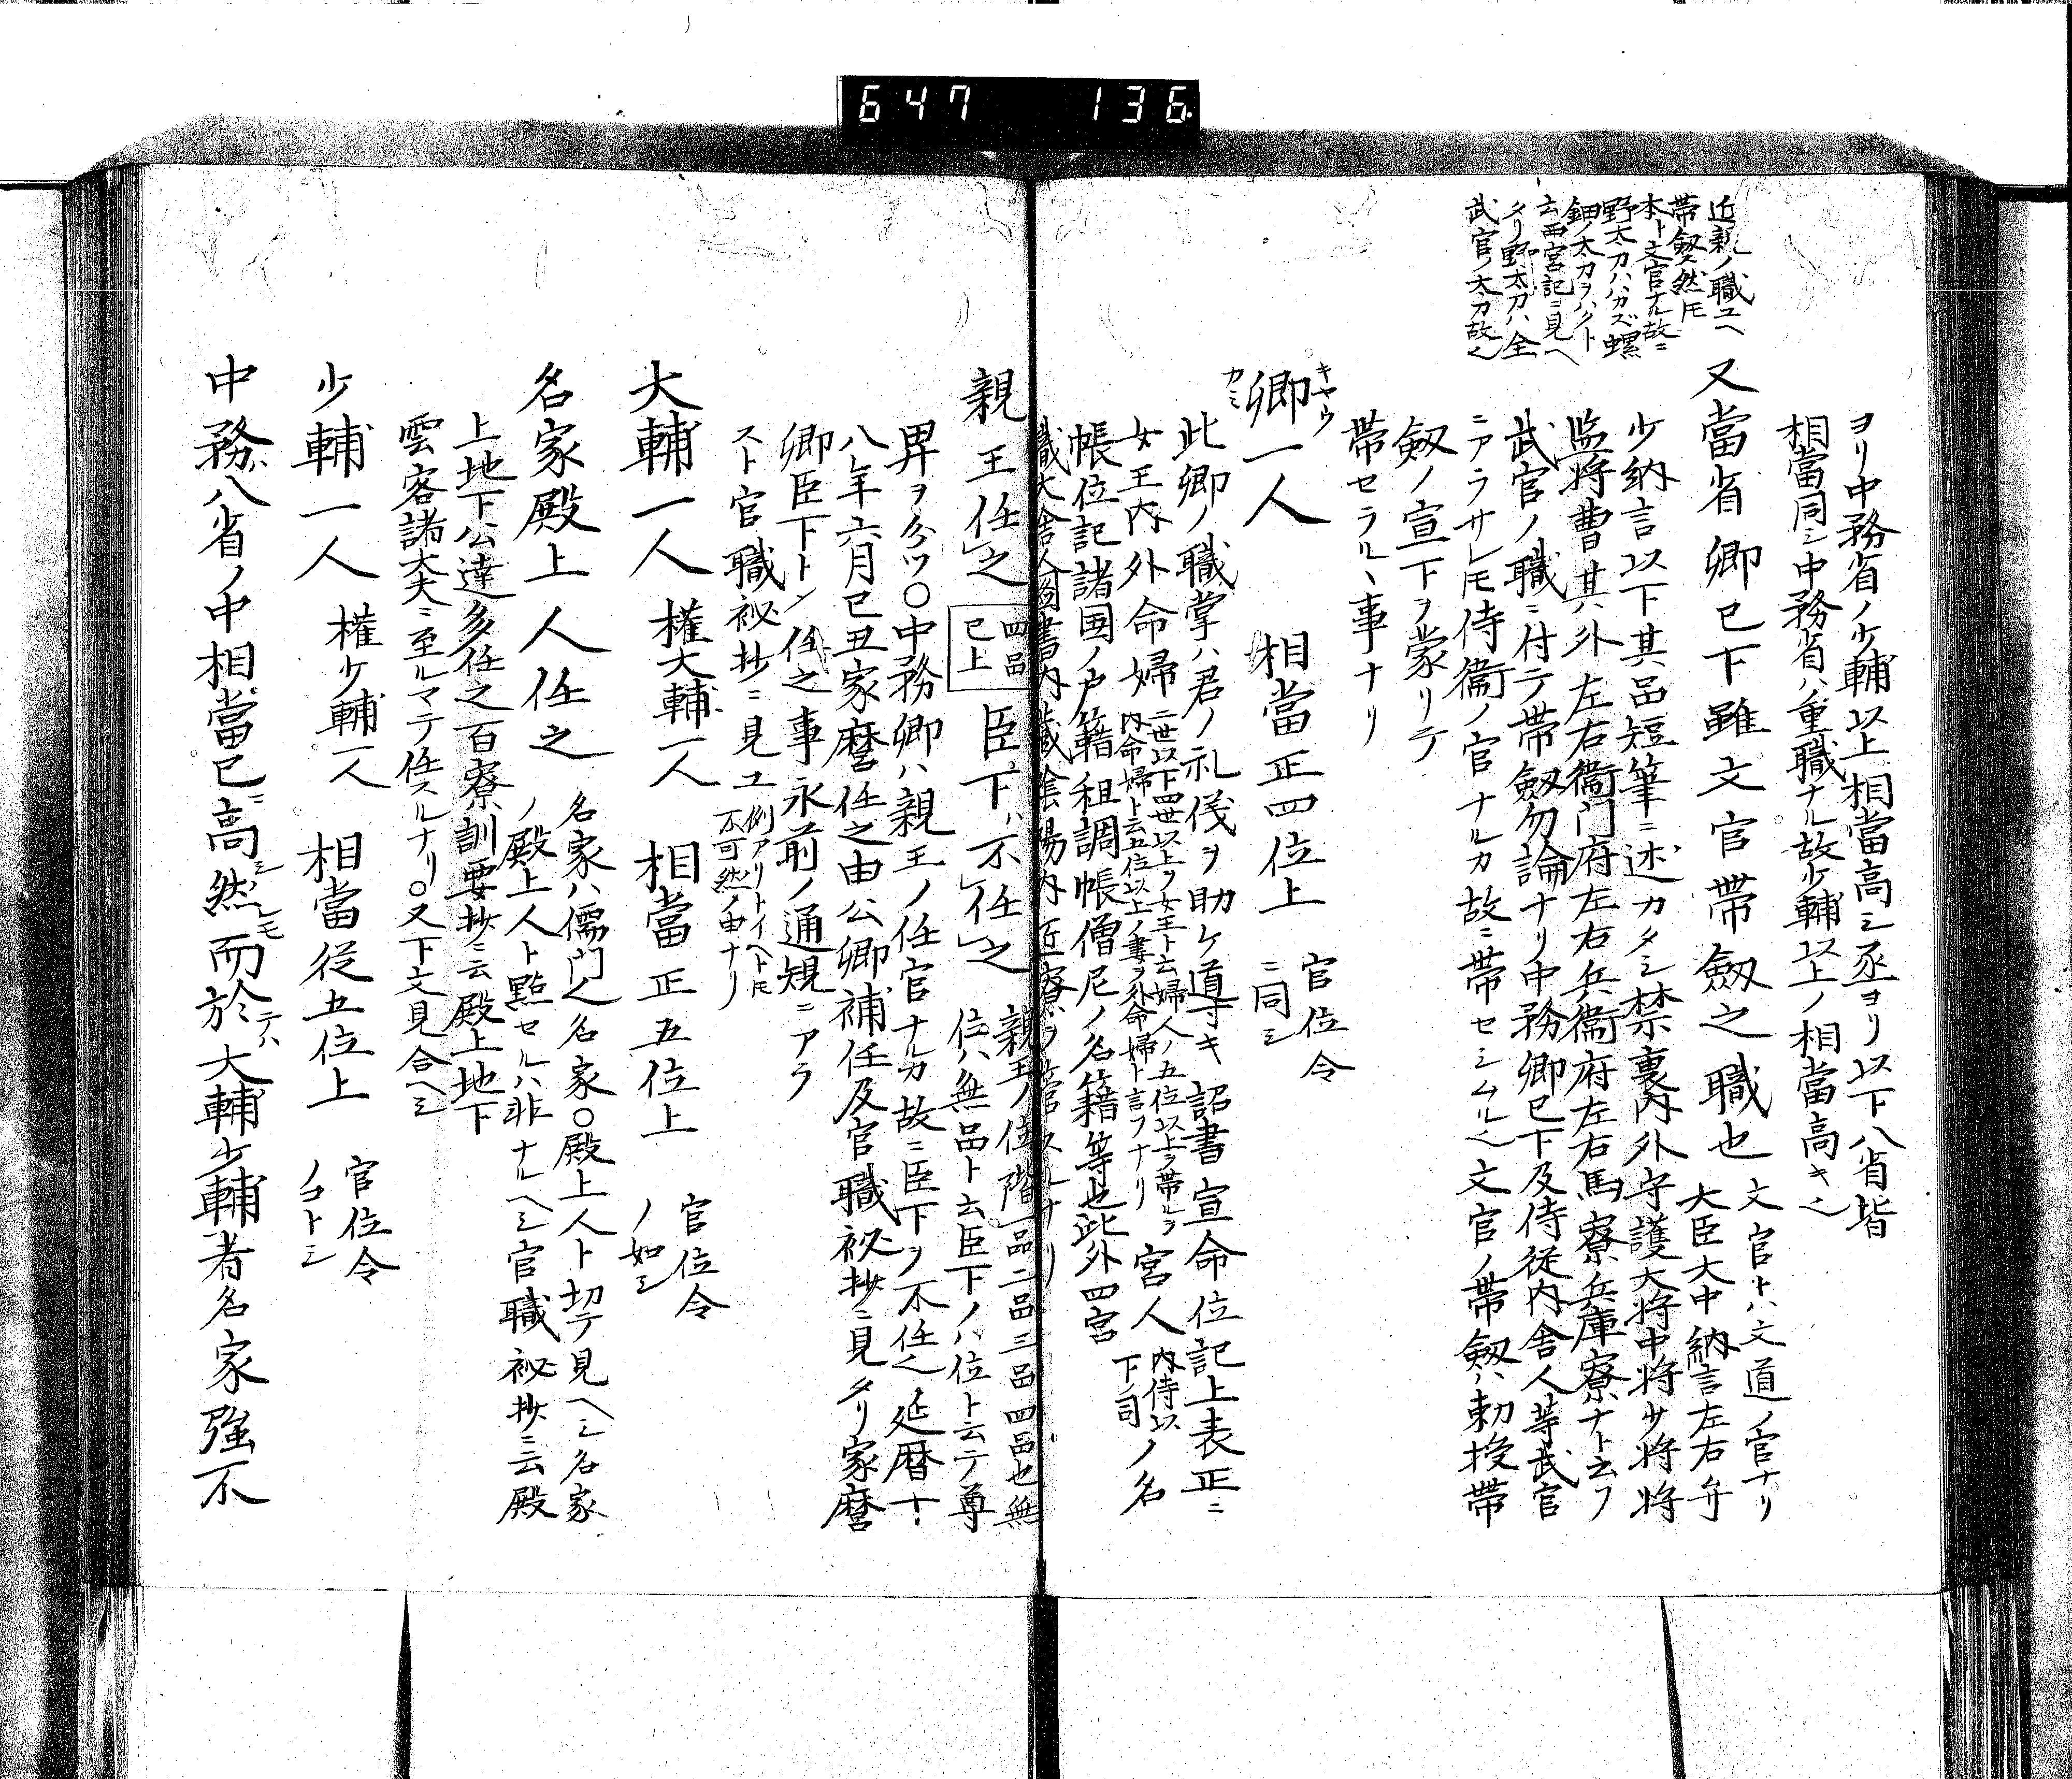 647 136
近親ノ職ユヘ
帯劔然𪜈
本ト文官ナル故ニ
野太刀ハハカズ螺
鈿ノ太刀ヲハクト
云西宮記ニ見ヘ
タリ野太刀ハ全
武官ノ太刀故也
ヨリ中務省ノ少輔以上相當高シ丞ヨリ以下八省皆
相當同シ中務省ハ重職ナル故少輔以上ノ相當高キ也
又當省卿已下雖文官帯劔之職也
文官トハ文道ノ官ナリ
大臣大中納言左右弁
少納言以下其品短筆ニ述カタシ禁裏内外守護大将中将少将将
監将曹其外左右衞門府左右兵衞府左右馬寮兵庫寮ナト云フ
武官ノ職ニ付テ帯劔勿論ナリ中務卿已下及侍従内舎人等武官
ニアラサレ𪜈侍衞ノ官ナルカ故ニ帯セシムル也文官ノ帯劔ハ勅授帯
劔ノ宣下ヲ蒙リテ
帯セラルヽ事ナリ
卿一人 キヤウ カミ 相當正四位上 官位令
ニ同シ
此卿ノ職掌ハ君ノ礼儀ヲ助ケ導キ詔書宣命位記上表正ニ
女王内外命婦 二世以下四世以上ヲ女王ト云婦人ノ五位以上ヲ帯ルヲ
内命婦ト云五位以上ノ妻ヲ外命婦ト言フナリ 宮人 内侍以
下ノ司 ノ名
帳位記諸国ノ戸籍租調帳僧尼ノ名籍等也此外四宮
職大舎人圖書内蔵陰陽内匠寮ヲ管スルナリ
親王任之 四品
已上 臣下ハ不任之
親王ノ位階一品二品三品四品也無
位ハ無品ト云臣下ノハ位ト云テ尊
畀ヲ分ツ○中務卿ハ親王ノ任官ナルカ故ニ臣下ヲ不任也延暦十
八年六月己丑家麿任之由公卿補任及官職秘抄ニ見タリ家麿
卿臣下トシ任之事永前ノ通規ニアラ
スト官職秘抄ニ見ユ 例アリトイヘト𪜈
不可然ノ由ナリ
大輔一人 權大輔一人 相當正五位上 官位令
ノ如シ
名家殿上人任之
名家ハ儒門也名家○殿上人ト切テ見ヘシ名家
ノ殿上人ト點セルハ非ナルヘシ官職秘抄ニ云殿
上地下公達多任之百寮訓要抄ニ云殿上地下
雲客諸大夫ニ至ルマテ任スルナリ○又下文見合ヘシ
少輔一人 權少輔一人 相當従五位上 官位令
ノコトシ
中務ハ八省ノ中相當已ニ高シ然レ𪜈而於テハ大輔少輔者名家強不